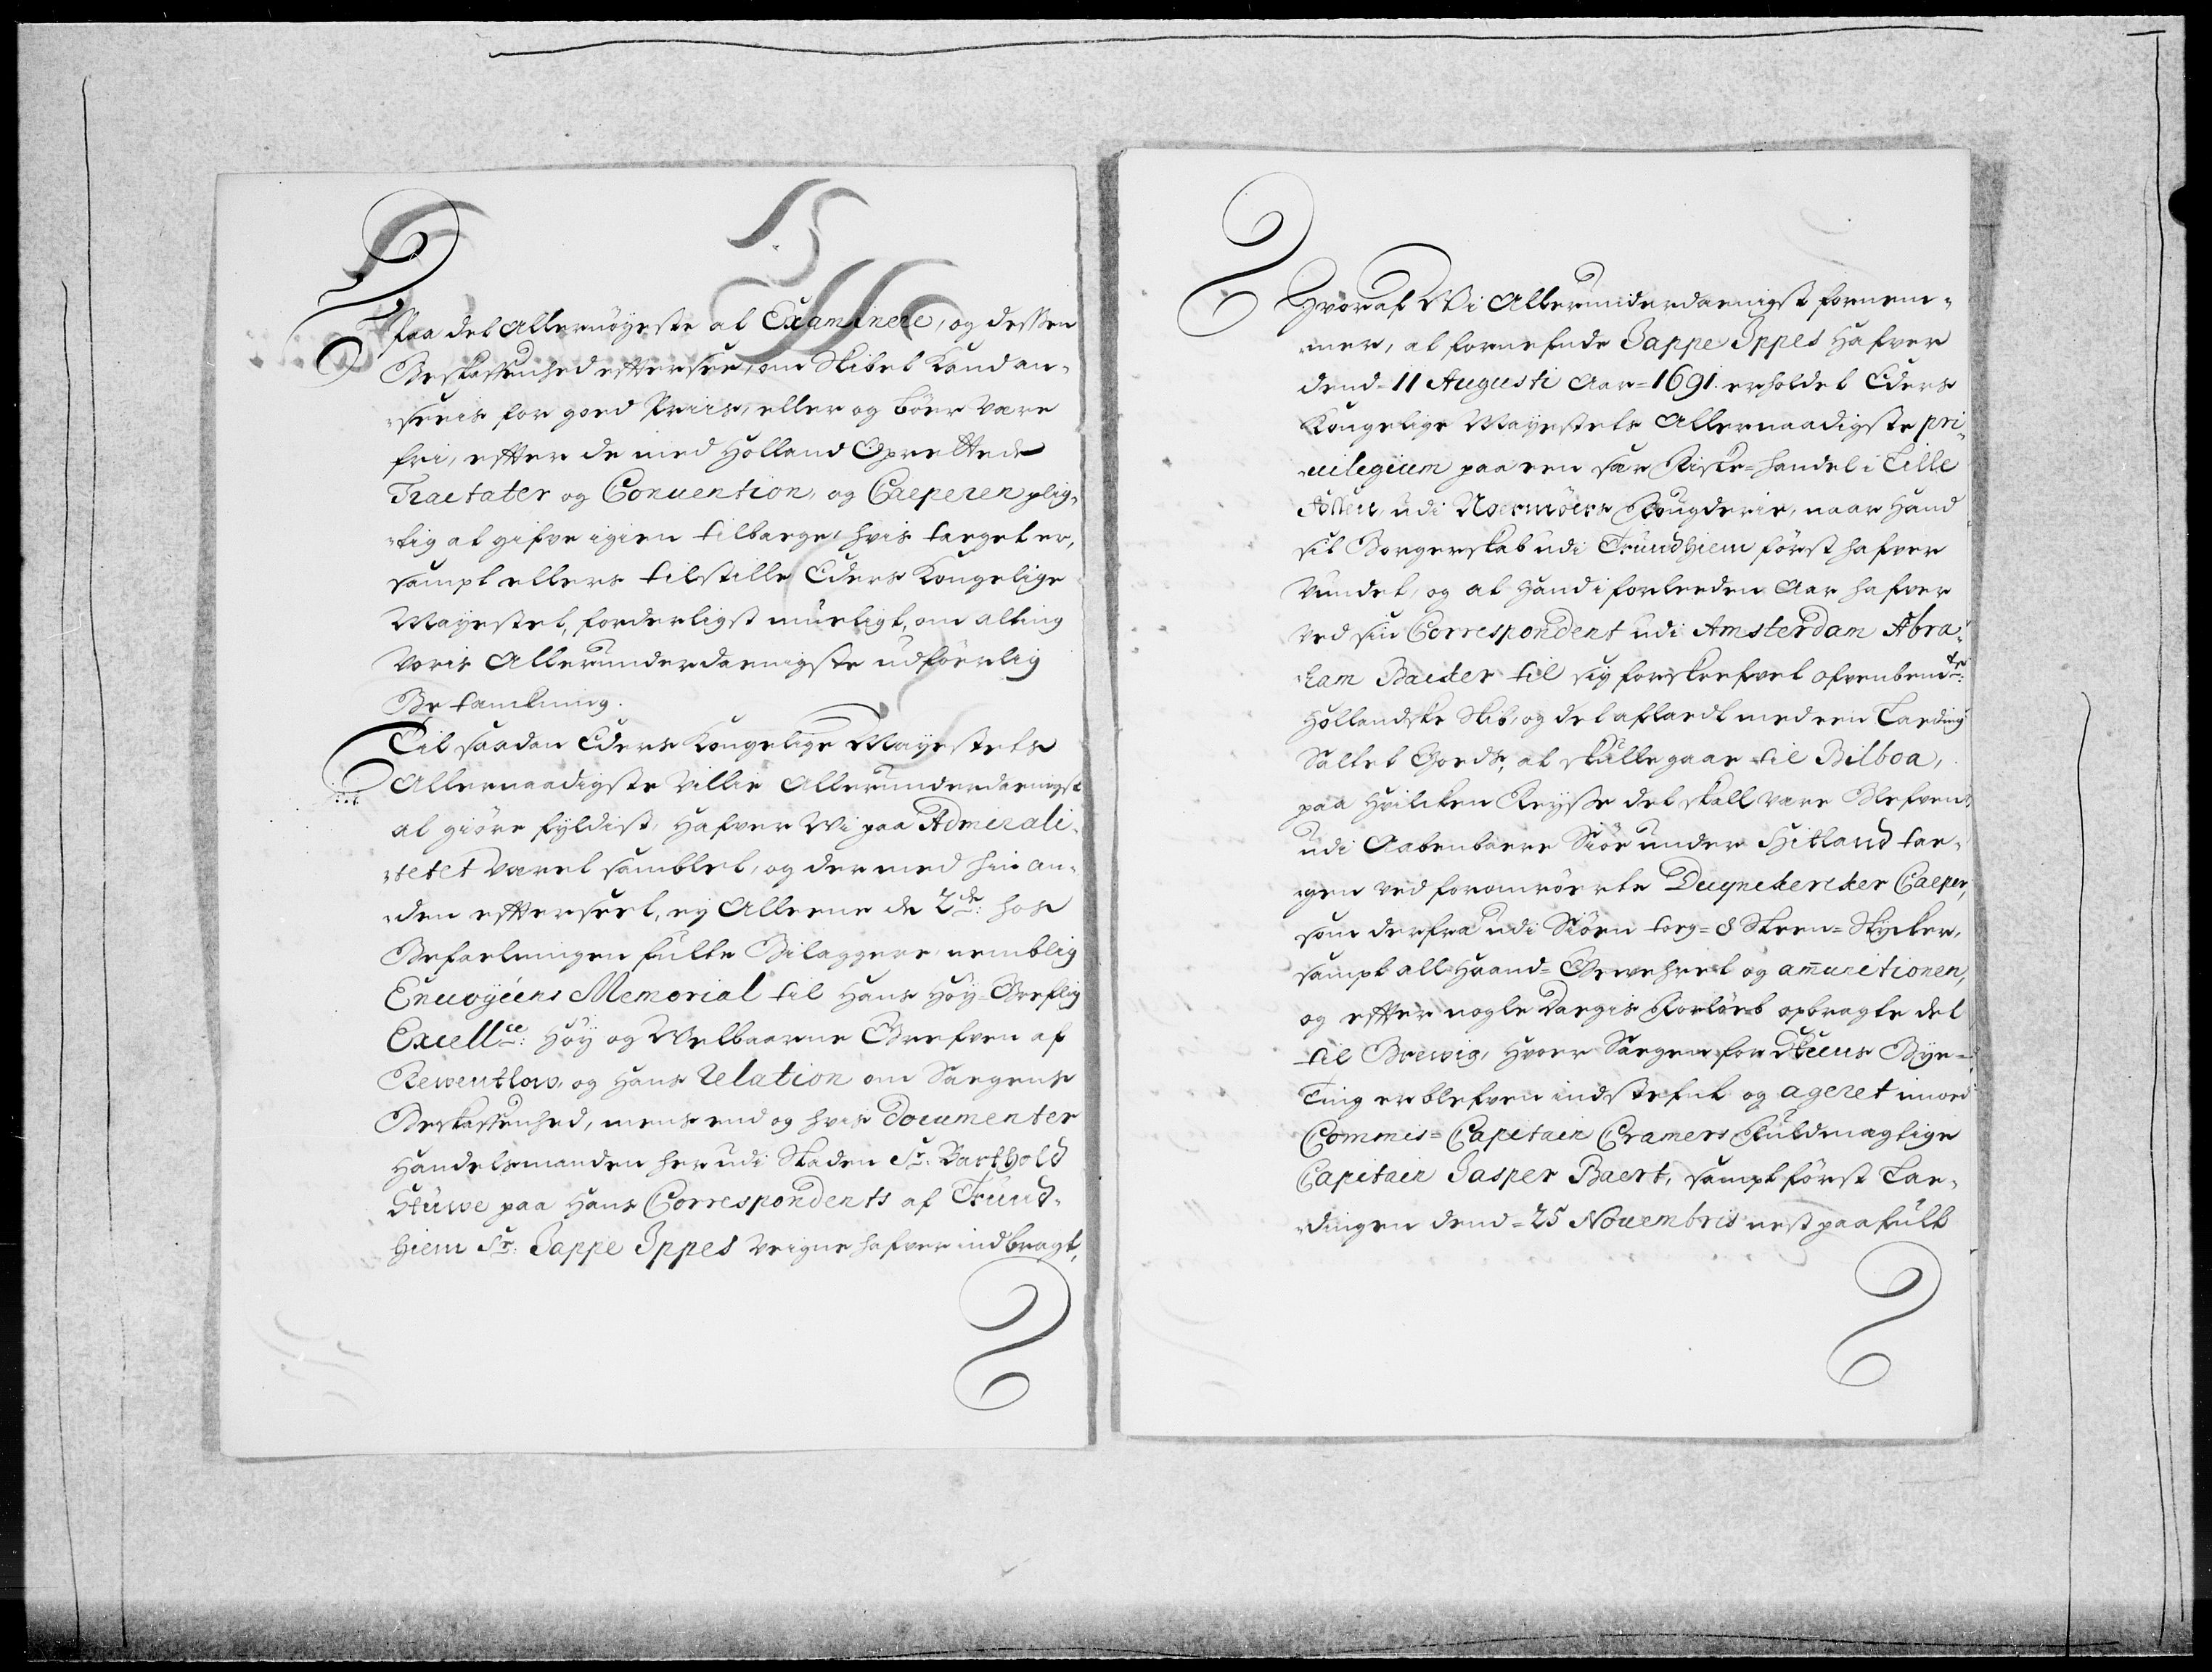 Paa det Allernøyeste at Examinere, og dessen
Beskaffenhed efftersee, om Skibet Kand an-
-seeis for goed Priis, eller og bøer være
fri, effter de med Holland Oprettede
Tractater og Conuention, og Caeperen plig-
-tig at gifve igien tilbage, hvis taget er,
sampt ellers tilstille Eders Kongelige
Mayestet, forderligst mueligt, om alting
Voris Allerunderdanigste udførlig
Betænkning.
Til saadan Eders Kongelige Mayestets
Allernaadigste Villie Allerunderdanigst
at giøre fyldist, Hafver Wi paa Admirali-
-tetet været samblet, og der med hin an-
-den effterseet, ey Alleene de 2de: hos
Befaelningen fulte Bilaggere, nemblig
Enuoyéens Memorial til Hans Høy-Greflig
Excellce: Høy og Welbaarne Grefven af
Rewentlow, og Hans relation om Sagens
Beskaffenhed, mens end og hvis Documenter
Handelsmanden her udi Staden Sr. Barthold
Stuwe paa Hans Correspondents af Trund-
hiem Sr: Jappe Ippes Veigne hafver indbragt,
Hvoraf Wi Allerunderdaenigst fornem-
-mer, at fornefnde Jappe Ippes Hafver
dend=11 Augusti Aar=1691. erholdet Eders
Kongelige Mayestets Allernaadigste pri-
-uilegium paa een sær Fiske=handel i Lille
udi Noermøers Fougderie, naar Hand
sit Borgerskab udi Trundhiem først hafver
Vundet, og at Hand i forleeden Aar hafver
ved sin Correspondent udi Amsterdam Abra-
-ham Baister til sig forskrefvet ofvenbemte:
Hollandske Skib, og det aflaedt med een Laeding
Saltet Goeds, at skulle gaae til Bilboa,
paa Hvilcken Reyse det skall være blefven
udi Aabenbaere Siøe under Hitland tae-
-gen ved foromrørte Duynckercker Caeper,
som derfra udi Siøen tog=8 Steen=Stycker,
sampt all Haand=Gewehret og amunitionen,
og effter nogle Dagis Forløeb opbragte det
til Brewig, Hvoer Saegen for Skeens Bye-
Ting er blefven indstefnt og ageret imod
Commis=Capitain Cramers Fuldmægtige
Capitain Jasper Baert, sampt først Lae-
-dingen dend=25 Nouembris nest paafult